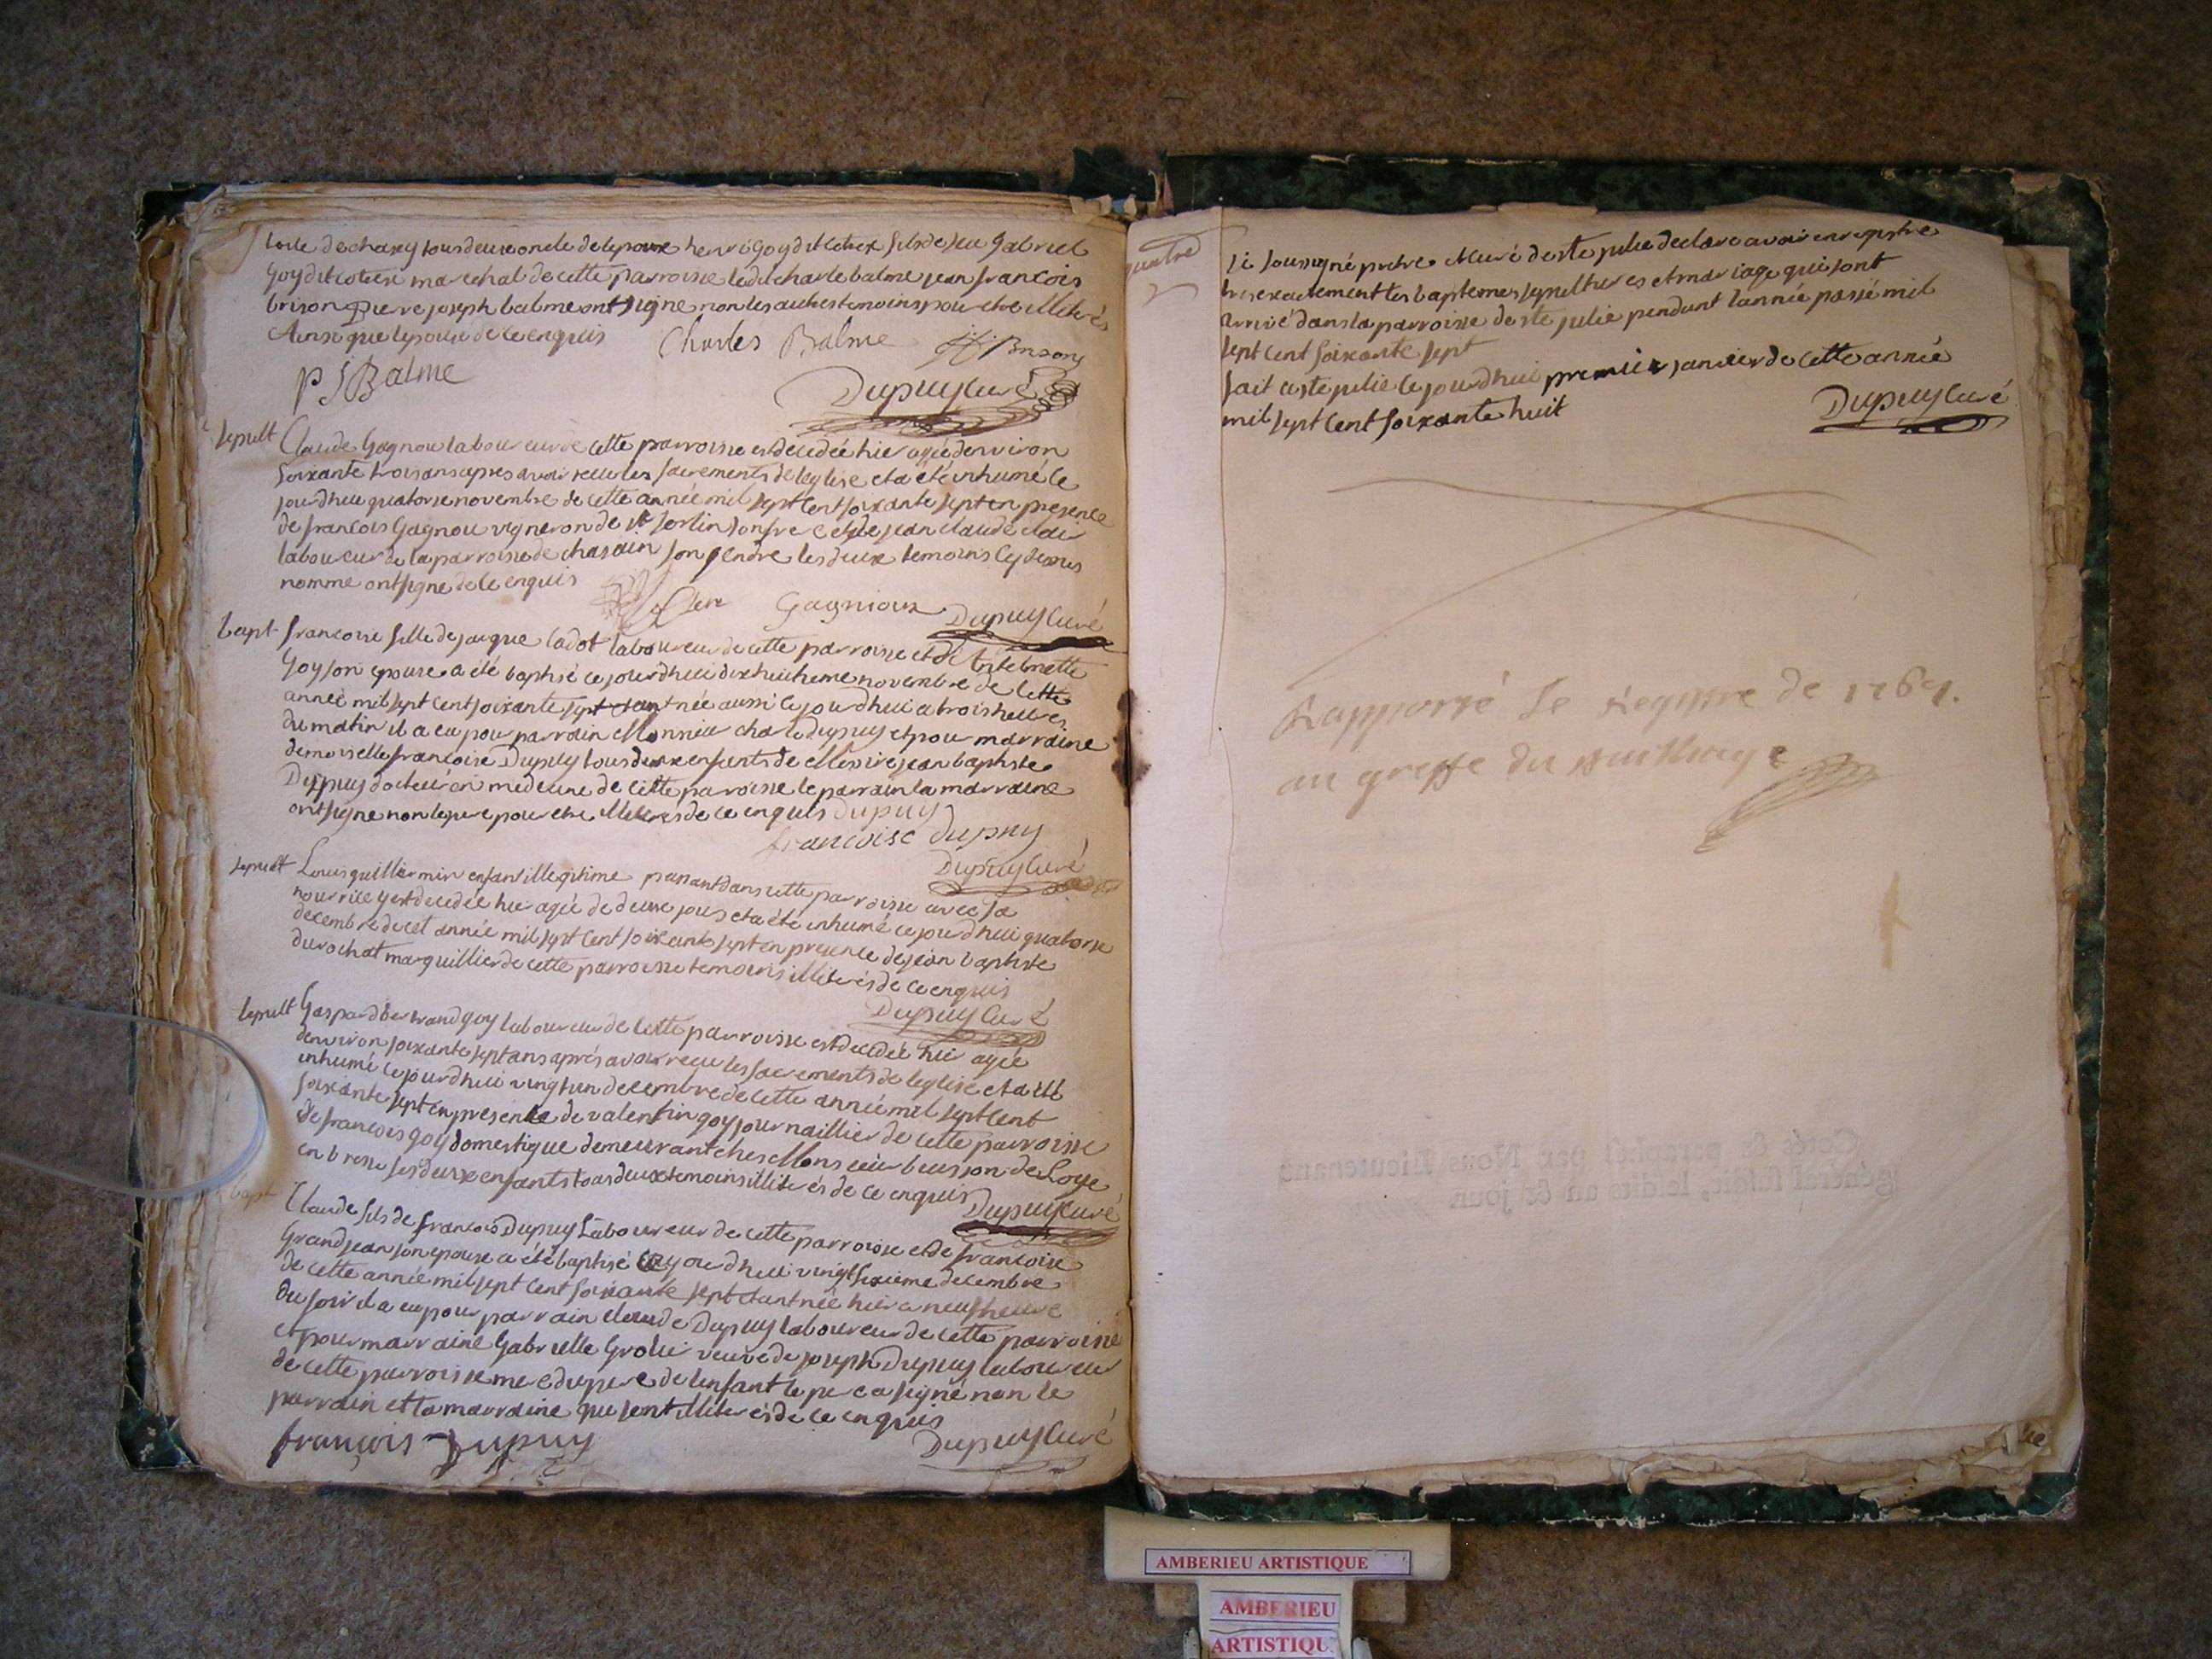 de chasey tous deux oncle de lepoux henri goy dit cotiex fils de feu gabriel
goy dit cotiex marechal de cette parroisse ledit charle balme jean francois
brison pierre joseph balme ont signe non les autres temoins pour etre illiterés
Ainsi que lepouse de ce enquis
Charles Balme
Brison
P J Balme
Dupuy curé
sepult
Claude Gagnou laboureur de cette parroisse est decedée hier agé denviron
soixante trois ans apres avoir recu les sacrements de leglise et a été inhumé ce
jourdhui quatorse novembre de cette année mil sept cent soixante sept en presence
de francois Gagnou vigneron de st sorlin son frere et de jean claude clair
laboureur de la parroisse de chasain son gendre les deux temoins cy dessus
nomme ont signe de ce enquis
Clere
Gagnioux
Dupuy curé
bapt
francoise fille de jacque Cadot laboureur de cette parroisse et de Antelmette
Goy son epouse a été baptisé ce jourdhui dix huitieme novembre de cette
année mil sept cent soixante sept etant née aussi ce jourdhui a trois heures
du matin il a eu pour parrain Monsieur charle Dupuy et pour marraine
demoiselle francoise Dupuy tous deux enfants de Messire jean baptiste
Dupuy docteur en medecine de cette paroisse le parrain la marraine
ont signe non le pere pour etre illiterés de ce enquis
Dupuy
francoise dupuy
Dupuy curé
sepult
Louis guillermin enfant illegitime passant dans cette parroisse avec sa
nourice y est decedée hier agée de deux jours et a été inhumé ce jourdhui quatorse
decembre de cet année mil sept cent soixante sept en presence de jean baptiste
durochat marguillier de cette parroisse temoins illiterés de ce enquis
Dupuy curé
sepult
Gaspard bertrand goy laboureur de cette parroisse est decedée hier agée
denviron soixante sept ans aprés avoir recu les sacrements de leglise et a été
inhumé ce jourdhui vingt un decembre de cette année mil sept cent
soixante sept en presence de valentin goy journaillier de cette parroisse
de francois goy domestique demeurant ches Monsieur buisson de Loye
en bresse ses deux enfants tous deux temoins illiterés de ce enquis
Dupuy curé
bapt
Claude fils de francois Dupuy Laboureur de cette parroisse et de francoise
Grandjean son epouse a été baptisé ce jourdhui vingt sixieme decembre
de cette année mil sept cent soixante sept etant née hier a neuf heure
du soir il a eu pour parrain claude Dupuy laboureur de cette parroisse
et pour marraine Gabrielle Grolie veuve de joseph Dupuy laboureur
de cette parroisse mere du pere de lenfant le pere a signé non le
parrain et la marraine qui sont illiterés de ce enquis
françois Dupuy
Dupuy curé
quatre
je soussigné pretre et curé de ste julie declare avoir enregistre
tres exactement les baptemes sepultures et mariage qui sont
arrivé dans la parroisse de ste julie pendant lannée passé mil
sept cent soixante sept
fait a ste julie ce jourdhui premier janvier de cette année
mil sept cent soixante huit
Dupuy curé
Rapporté le Registre de 1767.
au greffe du Bailliage
Cotés & paraphés par Nous Lieutenant
général susdit, lesdits an & jour
AMBERIEU ARTISTIQUE
AMBERIEU
ARTISTIQU